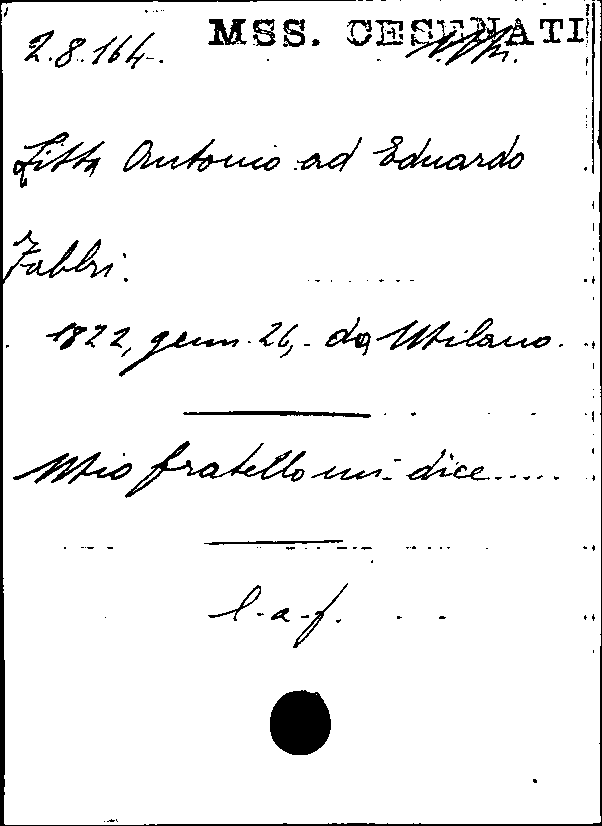 2.8.164. MSS. CESENATI
Litta Antonio ad Eduardo
Fabbri.
1822, genn. 26, da Milano.
Mio fratello mi dice.....
l.a.f.